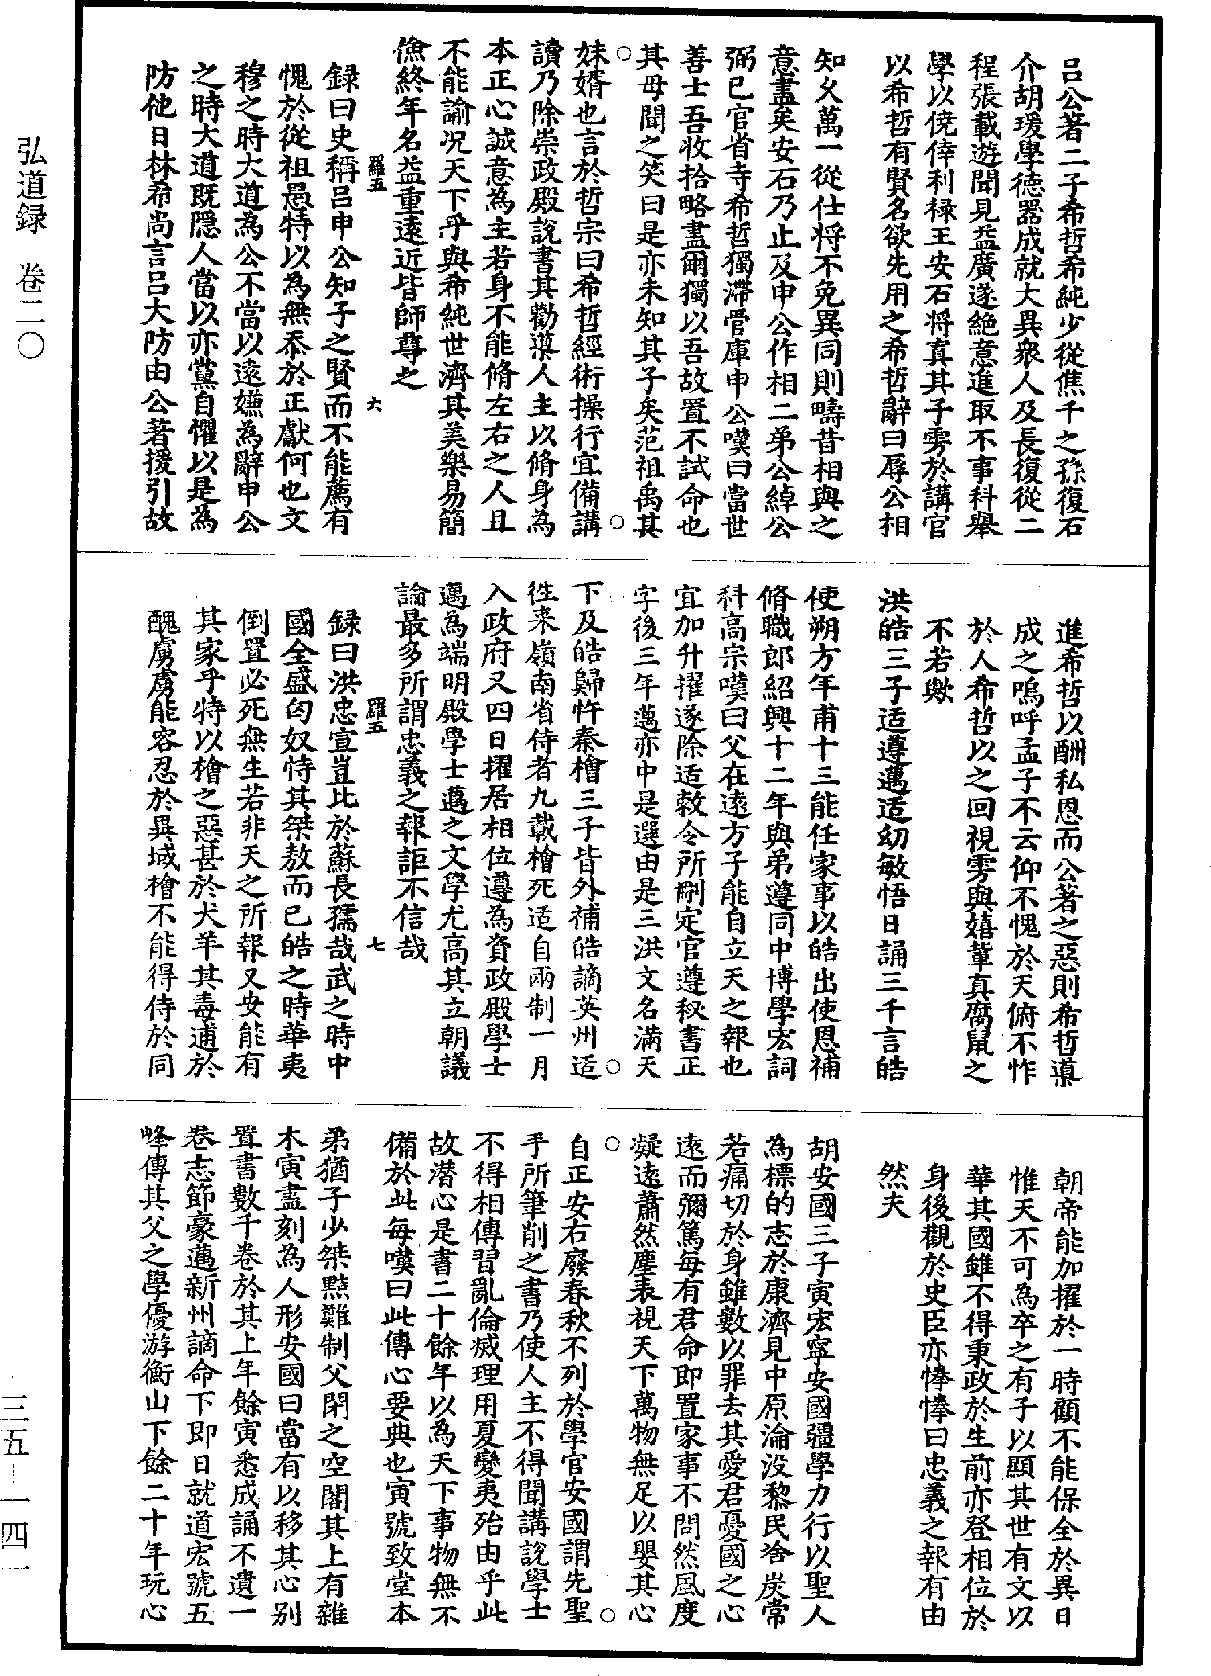 弘道録　卷二〇
三五—一四一
呂公著二子希哲希純少從焦千之孫復石
介胡瑗學德器成就大異衆人及長復從二
程張載遊聞見益廣遂絶意進取不事科舉
學以僥倖利禄王安石将寘其子雱於講官
以希哲有賢名欲先用之希哲辭曰辱公相
知久萬一從仕将不免異同則疇昔相與之
意盡矣安石乃止及申公作相二弟公綽公
弼已官省寺希哲獨滯管庫申公嘆曰當世
善士吾收拾略盡爾獨以吾故置不試命也
其母聞之笑曰是亦未知其子矣范祖禹其
○妹婿也言於哲宗曰希哲經術操行宜備講○
讀乃除崇政殿說書其勸導人主以脩身為
本正心誠意為主若身不能脩左右之人且
不能諭况天下乎與希純世濟其美樂易簡
儉終年名益重遠近皆師尊之
羅五　六
録曰史稱呂申公知子之賢而不能薦有
愧於從祖愚特以為無忝於正獻何也文
穆之時大道為公不當以遠嫌為辭申公
之時大道既隠人當以亦黨自懼以是為
防他日林希尚言呂大防由公著援引故
進希哲以酬私恩而公著之惡則希哲導
成之嗚呼孟子不云仰不愧於天俯不怍
於人希哲以之回視雱與嬉輩真腐鼠之
不若歟
洪皓三子适遵邁适幼敏悟日誦三千言皓
使朔方年甫十三能任家事以皓出使恩補
脩職郎紹興十二年與弟遵同中博學宏詞
科高宗嘆曰父在遠方子能自立天之報也
宜加升擢遂除适敕令所刪定官遵秘書正
字後三年邁亦中是選由是三洪文名滿天
下及皓歸忤秦檜三子皆外補皓謫英州适○
徃来嶺南省侍者九載檜死适自兩制一月
入政府又四日擢居相位遵為資政殿學士
邁為端明殿學士邁之文學尤高其立朝議
論最多所謂忠義之報詎不信哉
羅五　七
録曰洪忠宣豈比於蘇長孺哉武之時中
國全盛匈奴恃其桀敖而已皓之時華夷
倒置必死無生若非天之所報又安能有
其家乎特以檜之惡甚於犬羊其毒逋於
醜虜虜能容忍於異域檜不能得侍於同
朝帝能加擢於一時顧不能保全於異日
惟天不可為卒之有子以顯其世有文以
華其國雖不得秉政於生前亦登相位於
身後觀於史臣亦惓惓曰忠義之報有由
然夫
胡安國三子寅宏寧安國彊學力行以聖人
為標的志於康濟見中原淪没黎民塗炭常
若痛切於身雖數以罪去其愛君憂國之心
遠而彌篤每有君命即置家事不問然風度
凝遠蕭然塵表視天下萬物無足以嬰其心
○自正安石廢春秋不列於學官安國謂先聖○
手所筆削之書乃使人主不得聞講説學士
不得相傳習亂倫滅理用夏變夷殆由乎此
故潜心是書二十餘年以為天下事物無不
備於此每嘆曰此傳心要典也寅號致堂本
弟猶子少桀黠難制父閉之空閣其上有雜
木寅盡刻為人形安國曰當有以移其心别
置書數千卷於其上年餘寅悉成誦不遺一
卷志節豪邁新州謫命下即日就道宏號五
峰傳其父之學優游衡山下餘二十年玩心